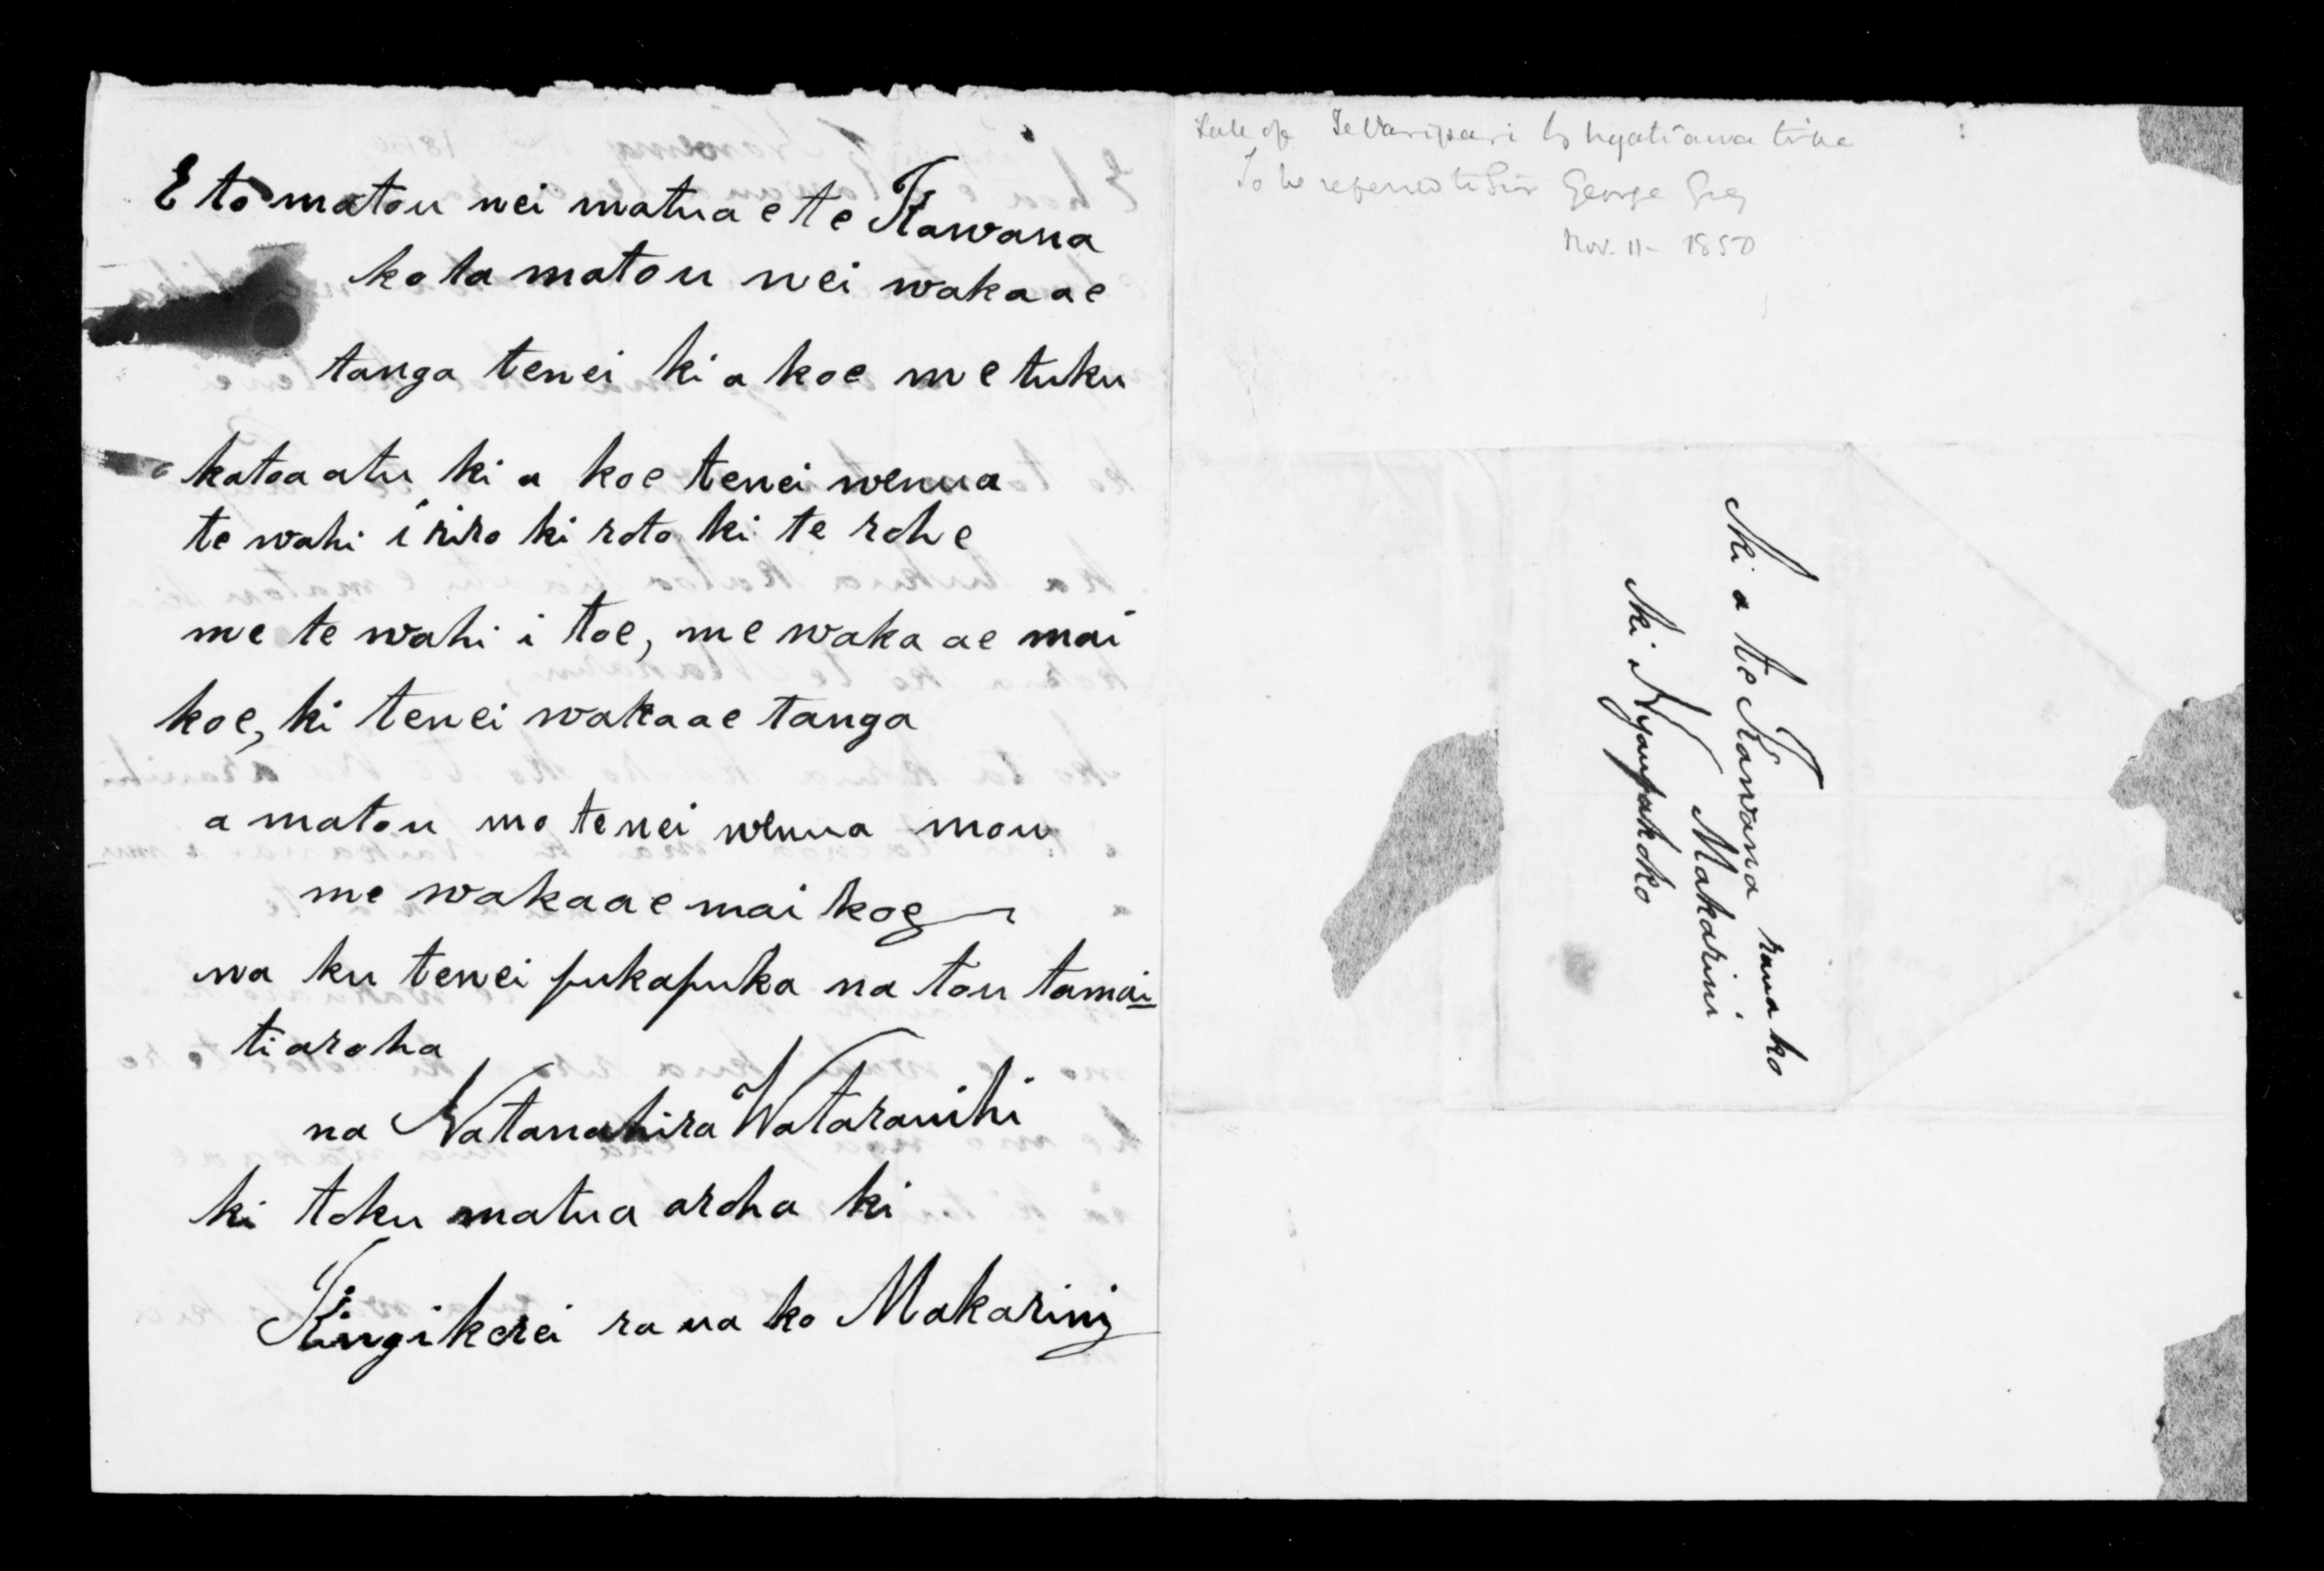 E to matou nei matua e te Kawana
ko ta matou nei wakaae
tanga tenei ki a koe me tuku
katoa atu ki a koe tenei wenua
te wahi i riro ki roto ki te rohe
me te wahi i toe, me waka ae mai
koe, ki tenei wakaae tanga
a matou mo tenei wenua mou
me wakaae mai koe
na ku tenei pukapuka na tou tamai
ti aroha
na Natanahira Wataranihi
ki toku matua aroha ki
Kingi kerei raua ko Makarini
Sale of Te Waripari by Ngatiawa tribe
To be referred to Sir George Grey
Nov. 11 - 1850
Ki a te Kawana raua ko
Makarini
Ki Nga